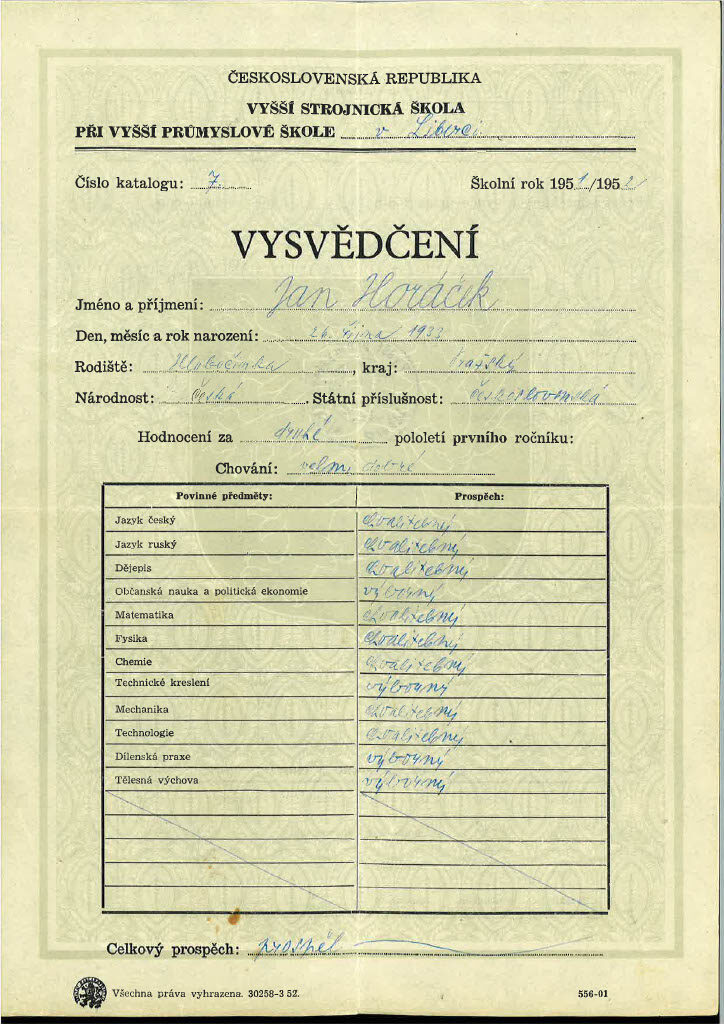 ČESKOSLOVENSKÁ REPUBLIKA
VYŠŠÍ STROJNICKÁ ŠKOLA
PŘI VYŠŠÍ PRŮMYSLOVÉ ŠKOLE v Liberci
Číslo katalogu: 7. Školní rok 1951/1952
VYSVĚDČENÍ
Jméno a příjmení: Jan Horáček
Den, měsíc a rok narození: 26. října 1933
Rodiště: , kraj: Pražský
Národnost: česká . Státní příslušnost: československá
Hodnocení za druhé pololetí prvního ročníku:
Chování: velmi dobré
Povinné předměty: Prospěch:
Jazyk český chvalitebný
Jazyk ruský chvalitebný
Dějepis chvalitebný
Občanská nauka a politická ekonomie výborný
Matematika chvalitebný
Fysika chvalitebný
Chemie chvalitebný
Technické kreslení výborný
Mechanika chvalitebný
Technologie chvalitebný
Dílenská praxe výborný
Tělesná výchova výborný
Celkový prospěch: prospěl
Všechna práva vyhrazena. 30258-3 52. 556-01